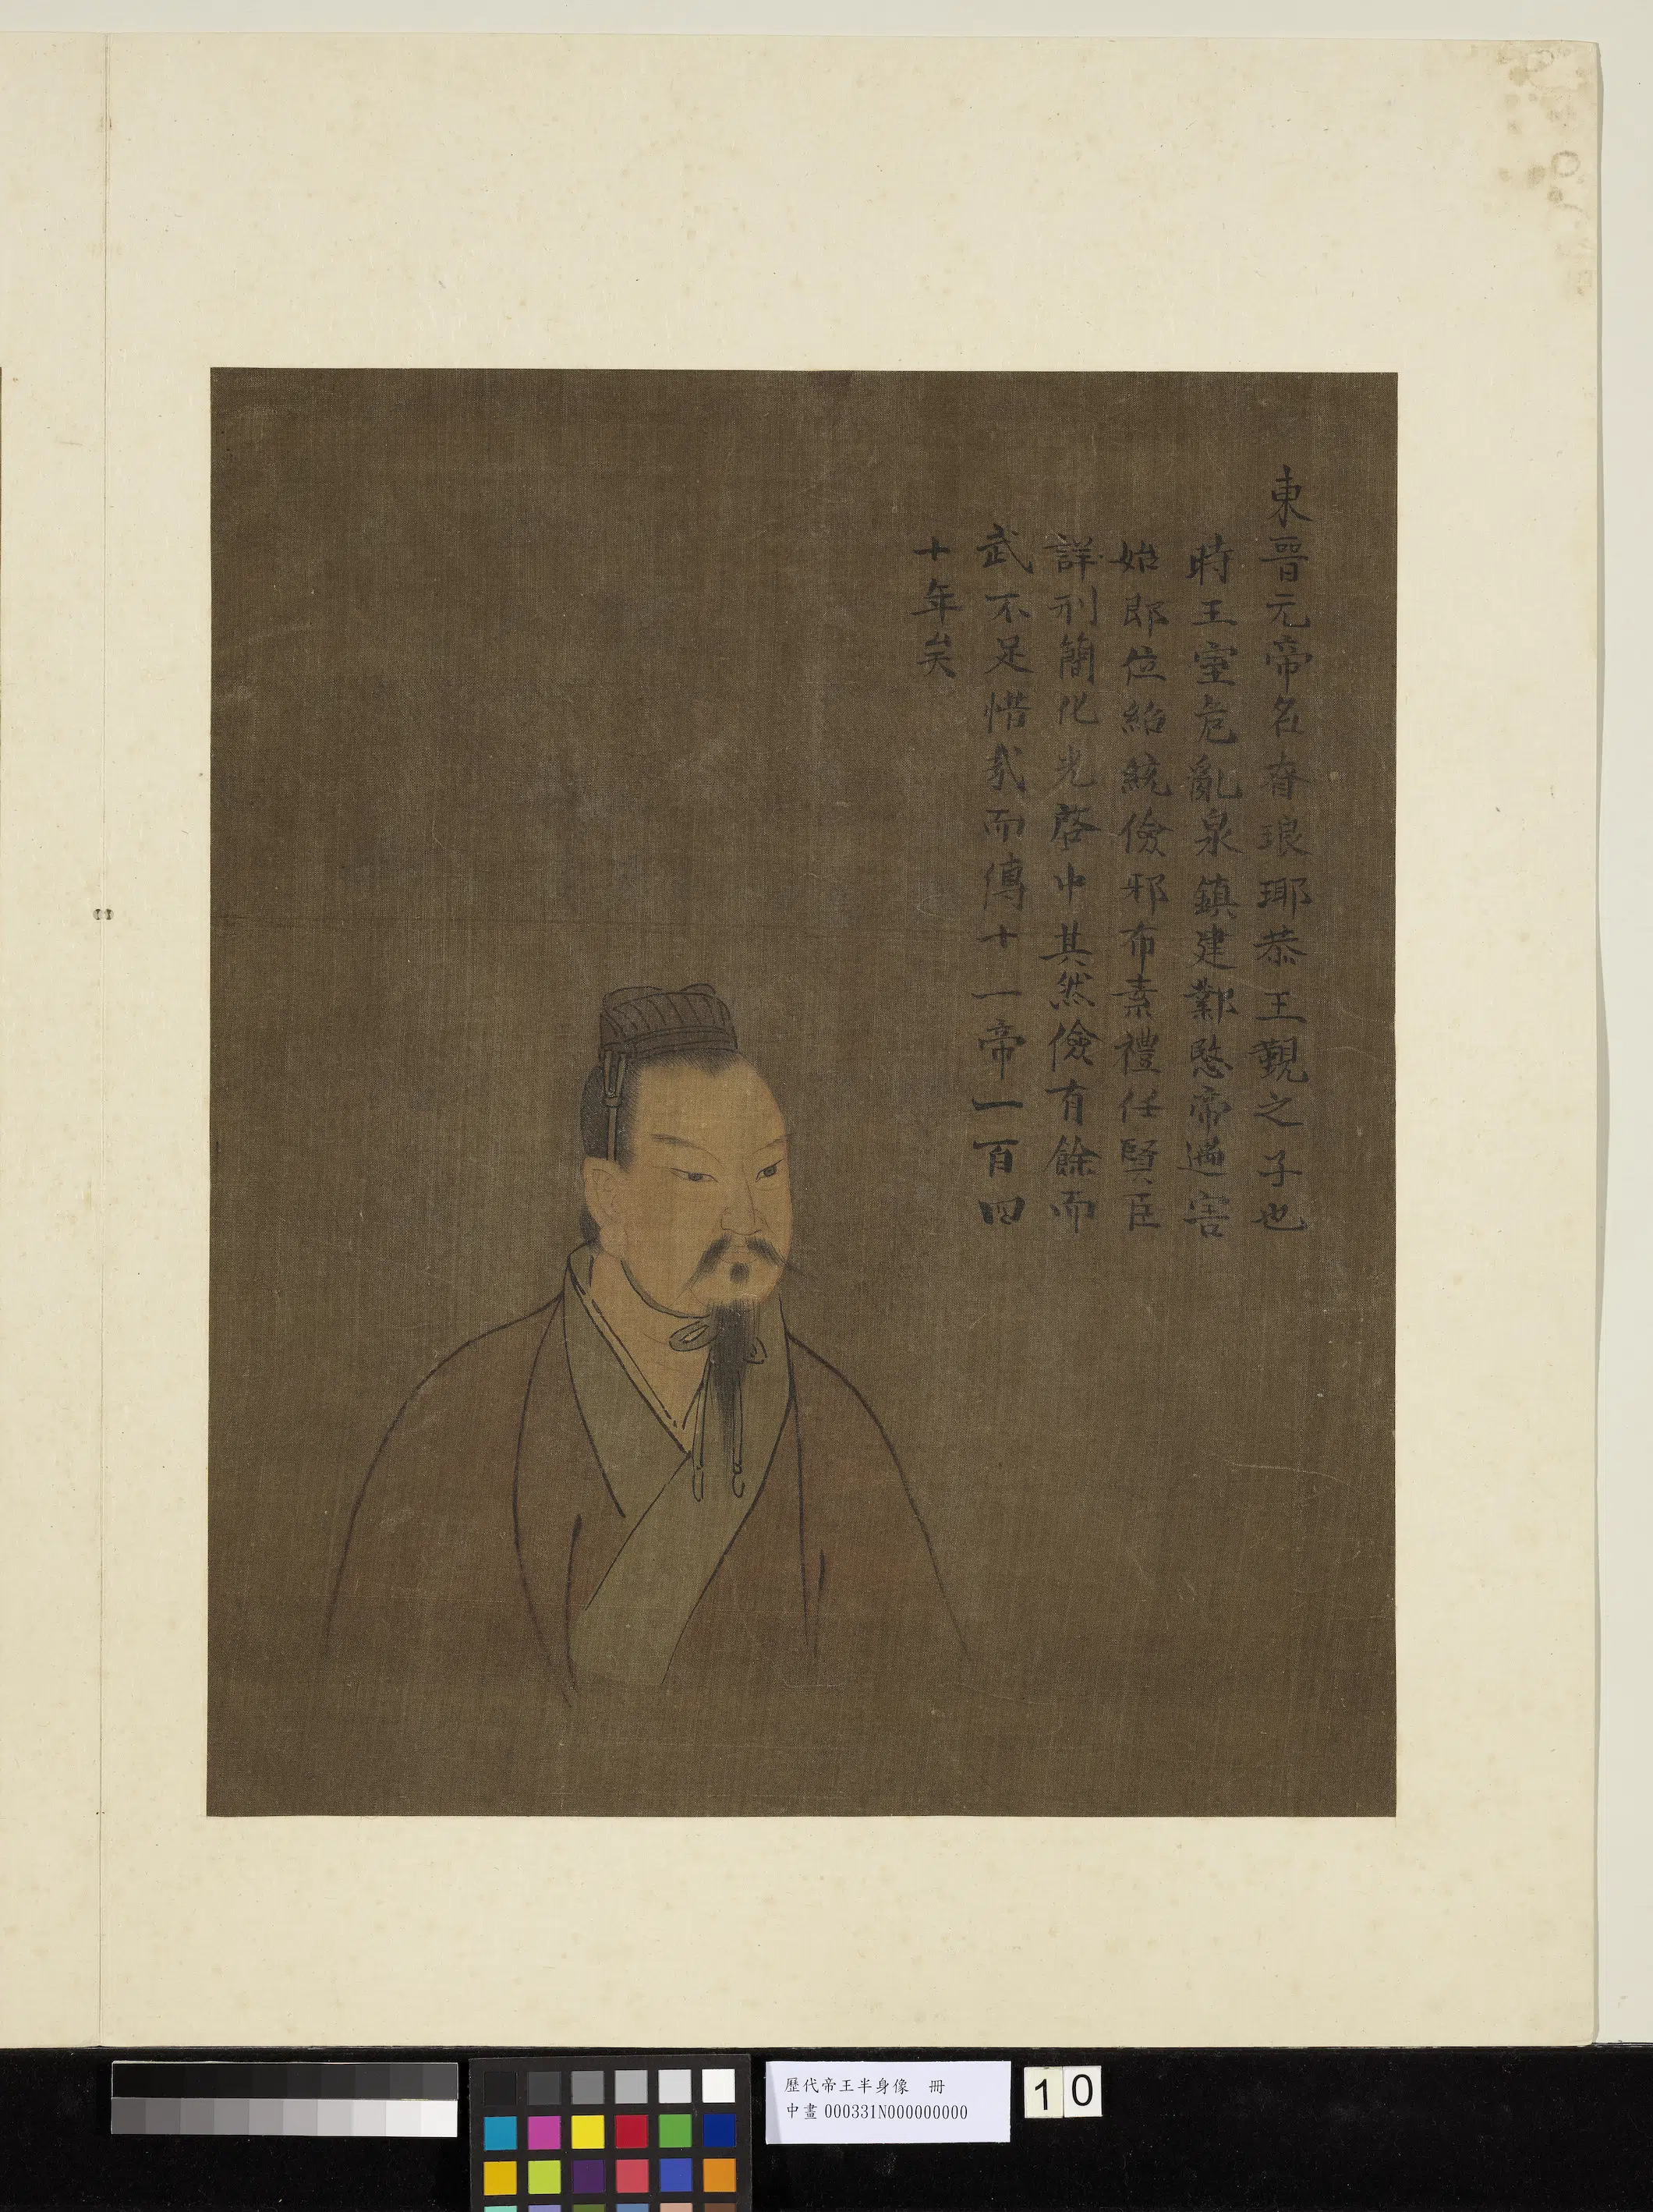 東晉元帝名睿琅耶恭王覲之子也
時王室危亂泉鎮建鄴愍帝遇害
始即位紹統儉邪布素禮任賢臣
詳刑簡化光啓中其然儉有餘而
武不足惜哉而傳十一帝一百四
十年矣
歷代帝王半身像 冊
中畫000331N000000000
10